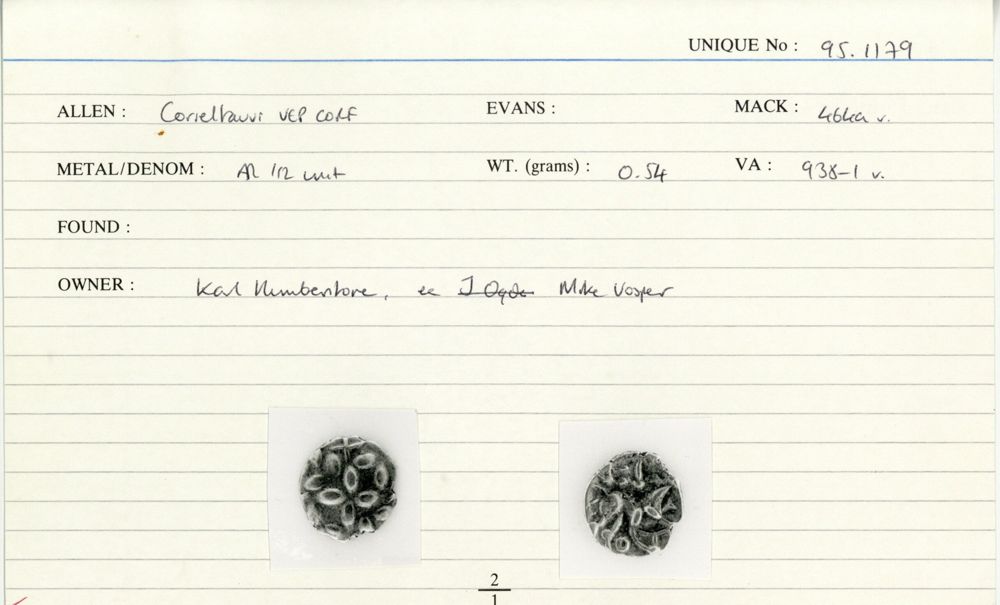 UNIQUE No : 95.1179
ALLEN : Corieltauvi VEP CORF EVANS : MACK : 464a v.
METAL/DENOM : AR 1/2 unit WT. (grams) : 0.54 VA : 938-1 v.
FOUND :
OWNER : Karl , ex J Ogden Mike Vosper
2
1